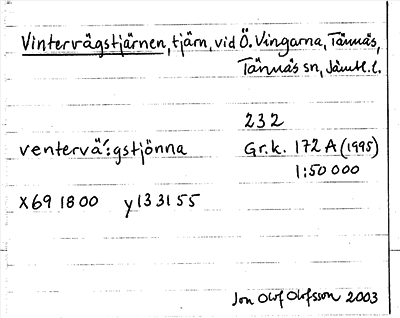 Vintervägstjärnen, tjärn, vid Ö. Vingarna, Tännäs,
Tännäs sn, Jämtl. l.
232
ventervä´:gstjönna Gr.k. 172 A (1995)
1:50 000
x 69 18 00 y 13 31 55
Jon Olof Olofsson 2003